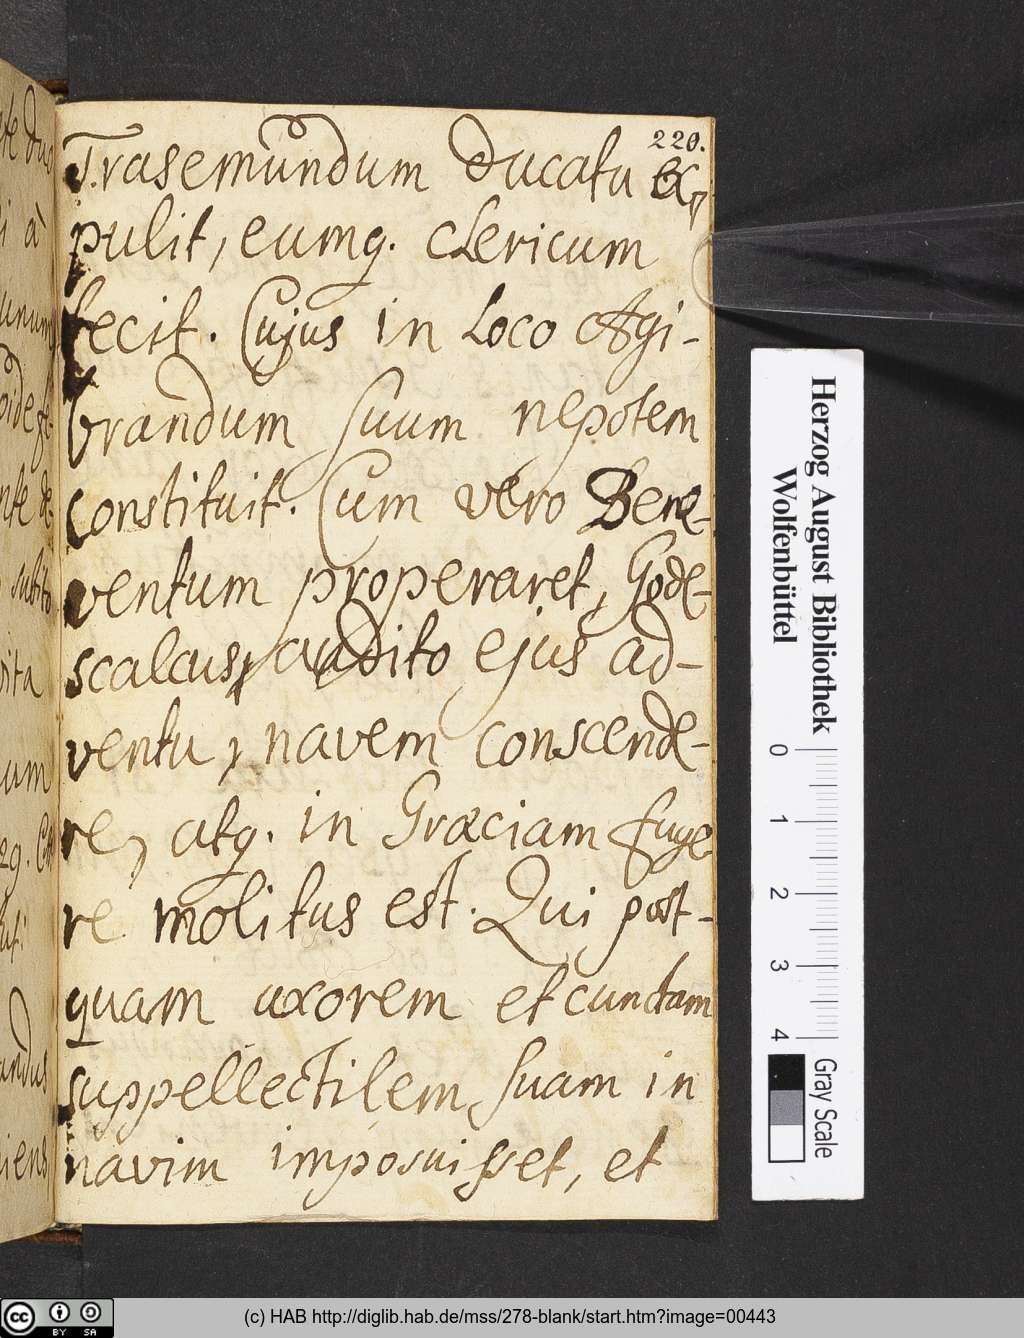 220.
Trasemundum ducatu ex,,
pulit, eumq. clericum
fecit. Cujus in loco Agi-
brandum suum nepotem
constituit. Cum vero Bene-
ventum properaret, Gode-
scalcus, audito ejus ad-
ventu, navem conscende-
re, atq. in Græciam fuge
re molitus est. Qui post-
quam uxorem et cunctam
suppellectilem suam in
navim imposuisset, et
Herzog August Bibliothek
Wolfenbüttel
0 1 2 3 4
Gray Scale
(c) HAB http://diglib.hab.de/mss/278-blank/start.htm?image=00443
cc BY SA